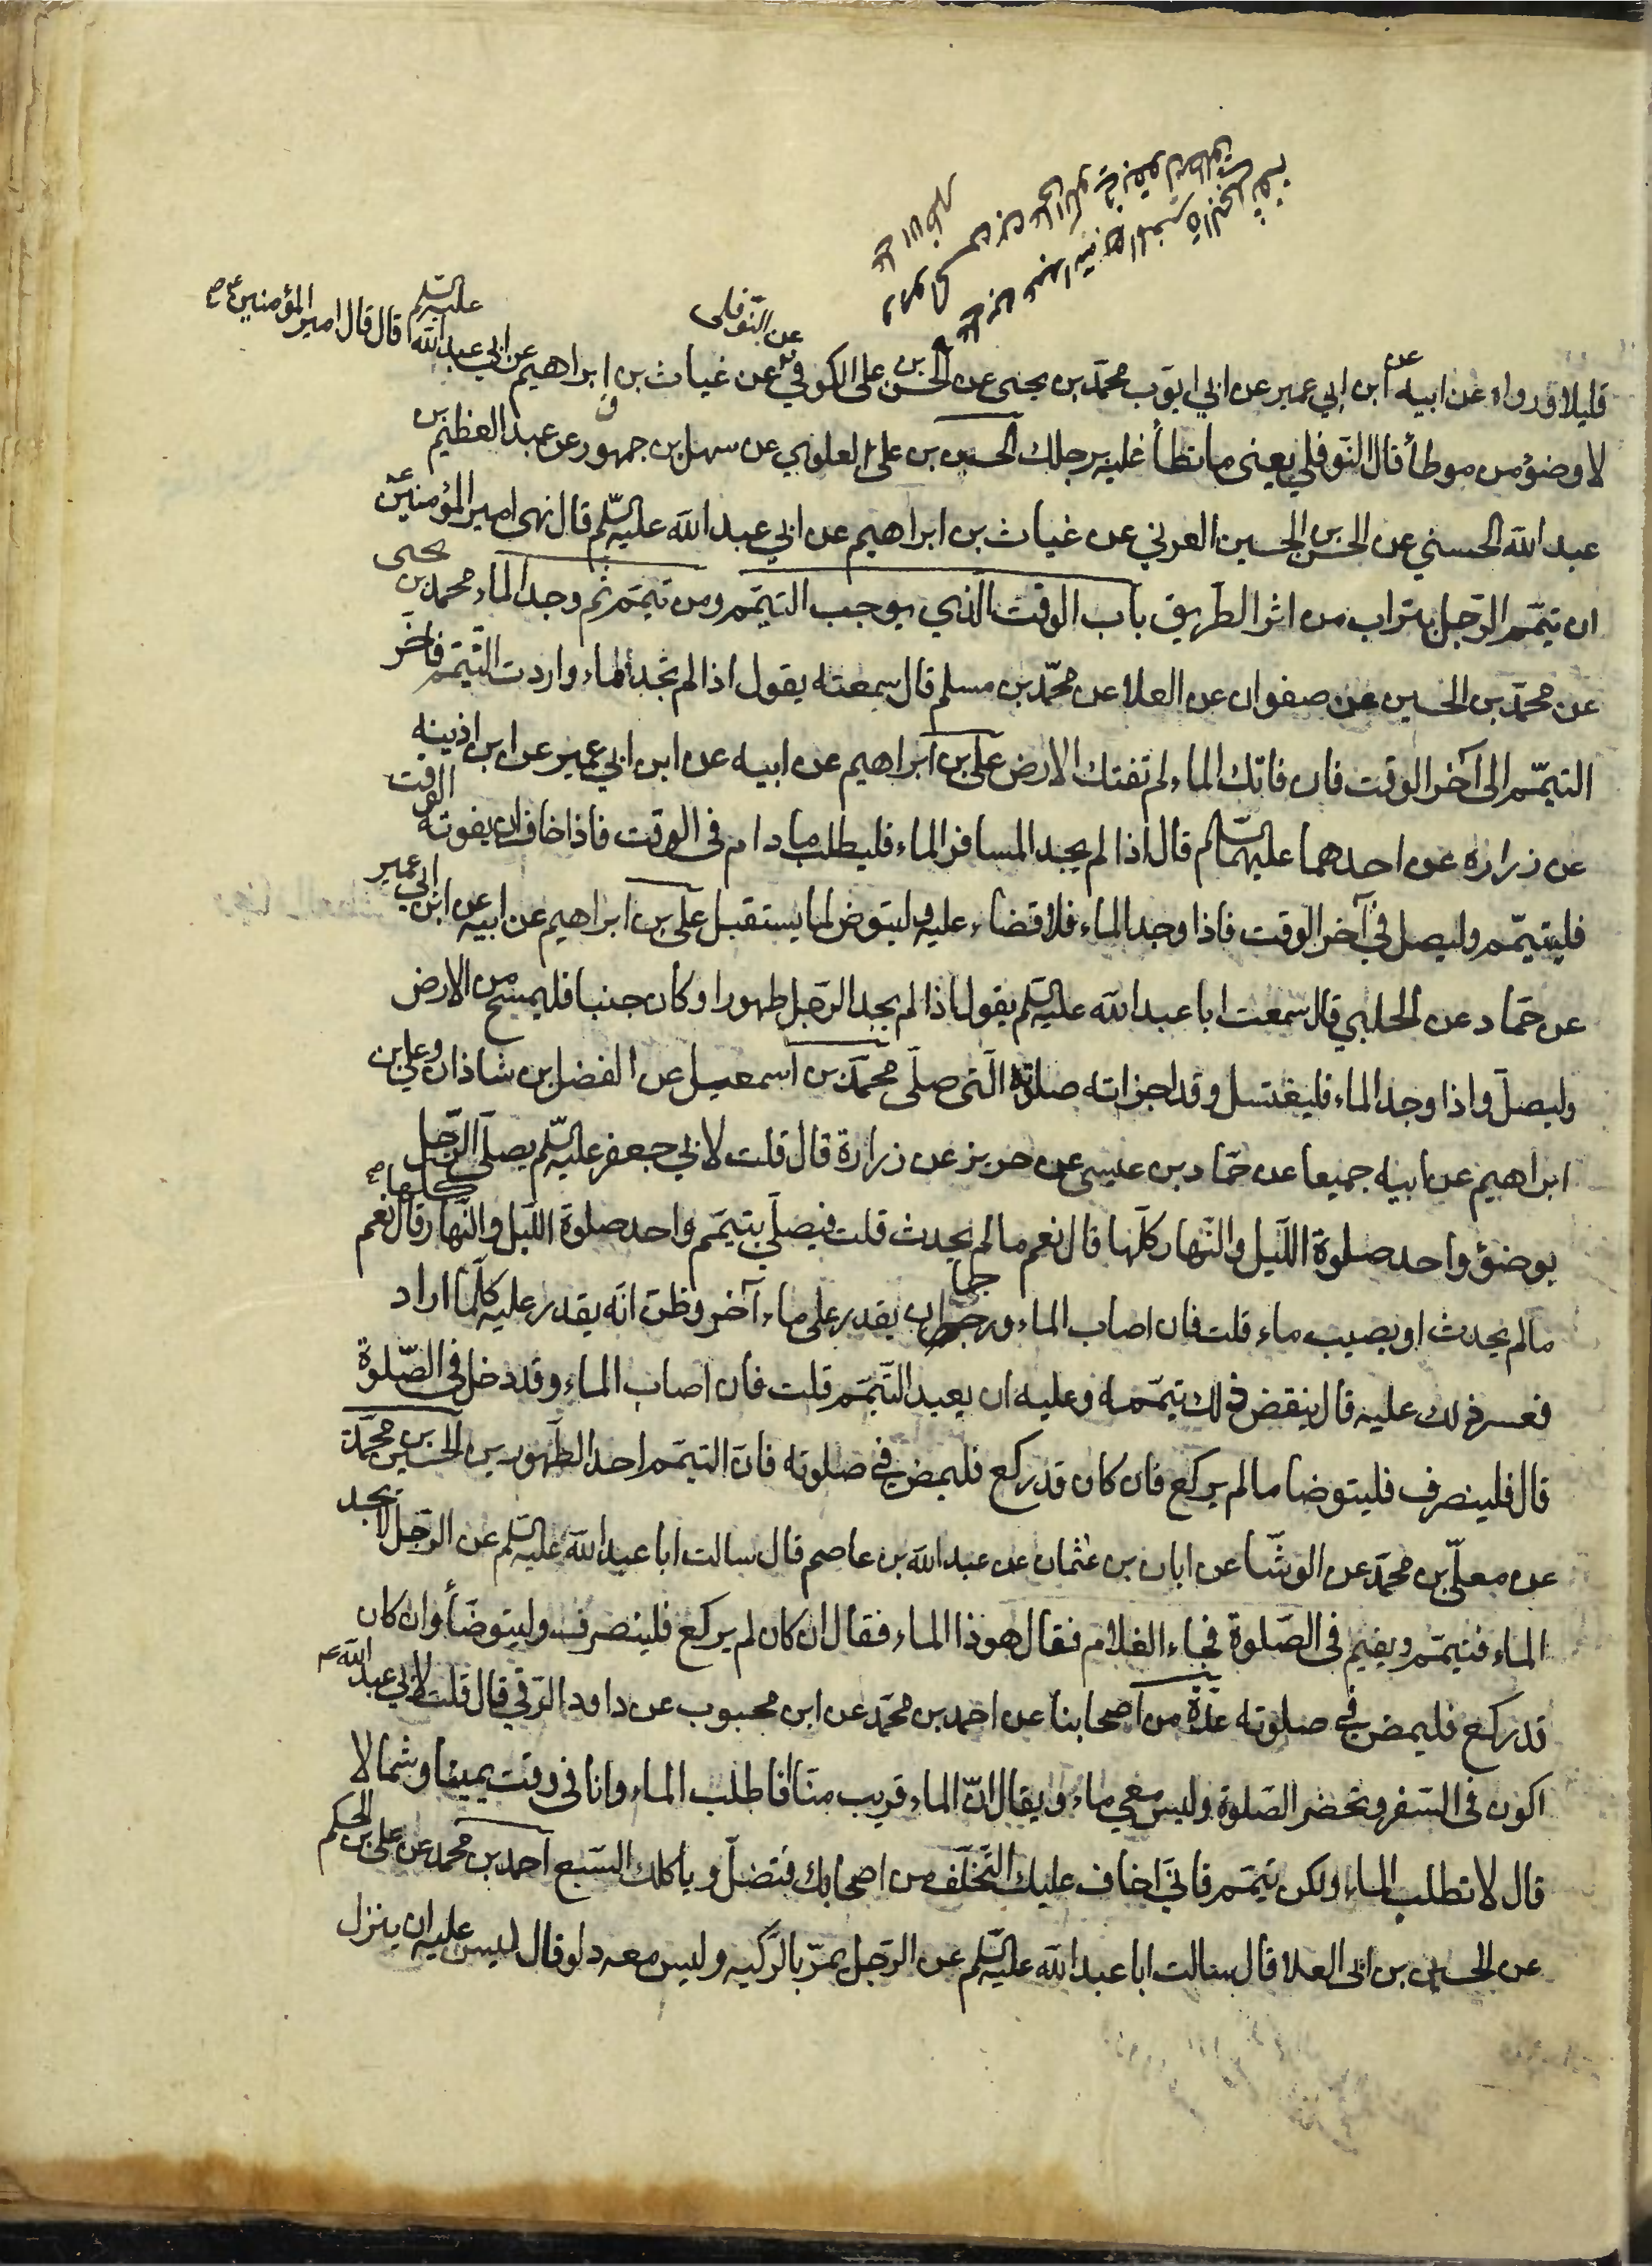 عن النوفلى
قليلا قدرواه عن ابيه عن ابن ابي عمير عن ابي ايوب محمد بن يحيى عن الحسن بن علي الكوفي عن غياث بن ابراهيم عن ابي عبد الله عليه السلم قال قال امير المؤمنين ع
لا وضؤ من موطأ قال النوفلي يعنى ما تطأ عليه برجلك الحسين بن على العلوي عن سهل بن جمهور عن عبد العظيم بن
عبد الله الحسني عن الحسن بن الحسين العرني عن غياث بن ابراهيم عن ابي عبد الله عليه السلم قال نهى امير المؤمنين ع
ان تيمم الرجل بتراب من اثر الطريق باب الوقت الذي يوجب التيمم ومن تيمم ثم وجد الماء محمد بن يحيى
عن محمد بن الحسين عن صفوان عن العلا عن محمد بن مسلم قال سمعته يقول اذا لم تجد الماء واردت التيمم فاخر
التيمم الى آخر الوقت فان فاتك الماء لم تفتك الارض علي بن ابراهيم عن ابيه عن ابن ابي عمير عن ابن اذينه
عن زراره عن احدهما عليهما السلم قال اذا لم يجد المسافر الماء فليطلب ما دام فى الوقت فاذا خاف ان يفوته الوقت
فليتيمم وليصل في آخر الوقت فاذا وجد الماء فلا قضاء عليه وليتوض لما يستقبل على بن ابراهيم عن ابيه عن ابن ابي عمير
عن حماد عن الحلبي قال سمعت ابا عبد الله عليه السلم يقول اذا لم يجد الرجل طهورا وكان جنبا فليمسح من الارض
وليصل واذا وجد الماء فليغتسل وقد اجزاته صلوته التى صلى محمد بن اسمعيل عن الفضل بن شاذان وعلي بن
ابراهيم عن ابيه جميعا عن حماد بن عيسى عن حريز عن زرارة قال قلت لابي جعفر عليه السلم يصلى الرجل
بوضؤ واحد صلوة الليل والنهار كلها قال نعم ما لم يحدث قلت فيصلي بتيمم واحد صلوة الليل والنهار كلها قال نعم
ما لم يحدث او يصيب ماء قلت فان اصاب الماء ورجا ان يقدر على ماء آخر وظن انه يقدر عليه كلما اراد
فعسر ذلك عليه قال ينقض ذلك تيممه وعليه ان يعيد التيمم قلت فان اصاب الماء وقد دخل فى الصلوة
قال فلينصرف فليتوضا ما لم يركع فان كان قد ركع فليمض في صلوته فان التيمم احد الطهورين الحسين بن محمد
عن معلى بن محمد عن الوشا عن ابان بن عثمان عن عبد الله بن عاصم قال سالت ابا عبد الله عليه السلم عن الرجل لا يجد
الماء فتيمم ويقيم فى الصلوة فجاء الغلام فقال هوذا الماء فقال ان كان لم يركع فلينصرف وليتوضأ وان كان
قد ركع فليمض في صلوته عدة من اصحابنا عن احمد بن محمد عن ابن محبوب عن داود الرقي قال قلت لابي عبد الله ع
اكون فى السفر وتحضر الصلوة وليس معي ماء ويقال ان الماء قريب منا فاطلب الماء وانا فى وقت يمينا وشمالا
قال لا تطلب الماء ولكن تيمم فاني اخاف عليك التخلف من اصحابك فتضل وياكلك السبع احمد بن محمد عن علي بن الحكم
عن الحسين بن ابى العلا قال سالت ابا عبد الله عليه السلم عن الرجل يمر بالركيه وليس معه دلو قال ليس عليه ان ينزل